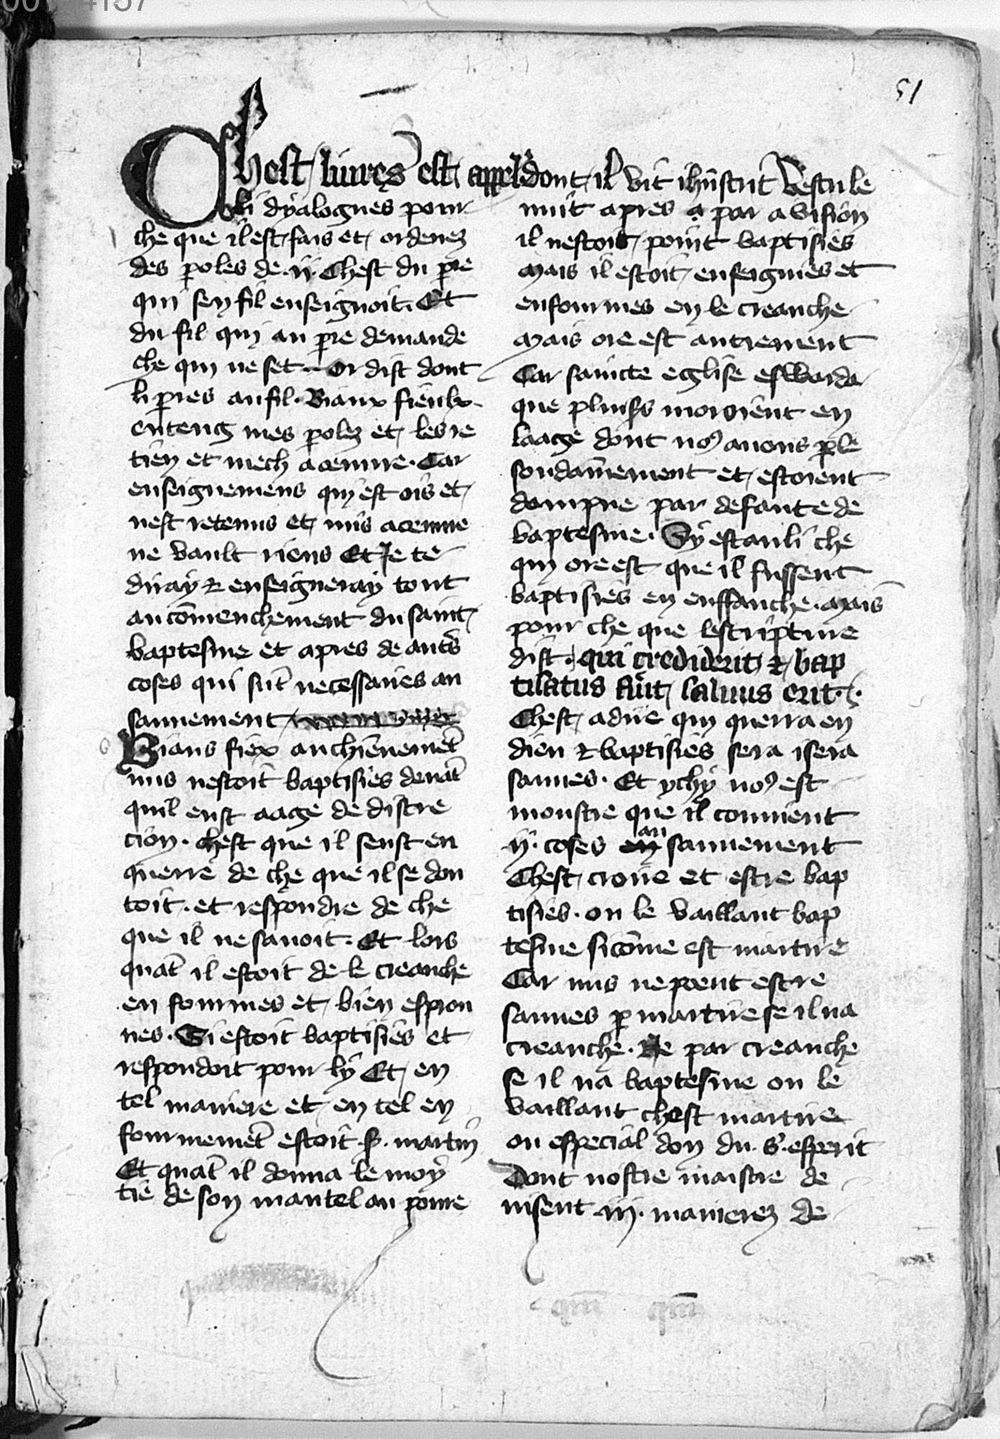 51
Chest livres est appeles
li dyalogues pour
che que il est fais et ordenez
des poles de .ii. Chest du pre
qui sen fil enseignoit. Et
du fil qui au pre demande
che qui ne set. Or dist dont
li pries au fil. Biaux fieulx
enteng mes polez et les re
tien et mech a cemne. Car
enseignemens qui est ois et
nest retenus et mis a cemne
ne vault riens Et Je te
diray & enseigneray tout
au comenchement du saint
baptesme et apres de autrs
coses qui sut necessaires au
sauvement
Biaus fiex anchienemet
nus nestoit baptisies devat
quil eust aage de discre
cion. chest que il seust en
querre de che que il se dou
toit. et respondre de che
que il ne savoit. Et lors
quat il estoit de le creanche
en fourmes et bien esprou
ves. Si estoit baptisies et
respondoit pour ly Et en
tel maniere et en tel en
fourmemet estoit .s. martin
Et quat il donna le moy
tie de son mantel au povre
dont il vit ihucrit vestu le
nuit apres a par avision
il nestoit point baptisies
Mais il estoit enseignies et
enfourmes en le creanche
Mais ore est autrement
Car saincte eglise eswarda
que pluisrs moroient en
laage dont nos avons ple
soudainement et estoient
dampne par defaute de
baptesme. Sy estauli che
qui ore est que il fussent
baptisies en enffanche. Mais
pour che que lescripture
dist. qui crediderit & bap
tisatus fuit salvus erit.
Chest a dire qui querra en
dieu & baptisies sera i sera
sauves. Et ychy nos est
moustre que il convient
.ii. coses en au sauvement
Chest croire et estre bap
tisies. ou le vaillant bap
tesme sicome est martire
Car nus ne peut estre
sauves p martire se il na
creanche. Ne par creanche
se il na baptesme ou le
vaillant chest martire
ou especial don du .s. esperit
Dont nostre maistre de
visent .iii. manierez de